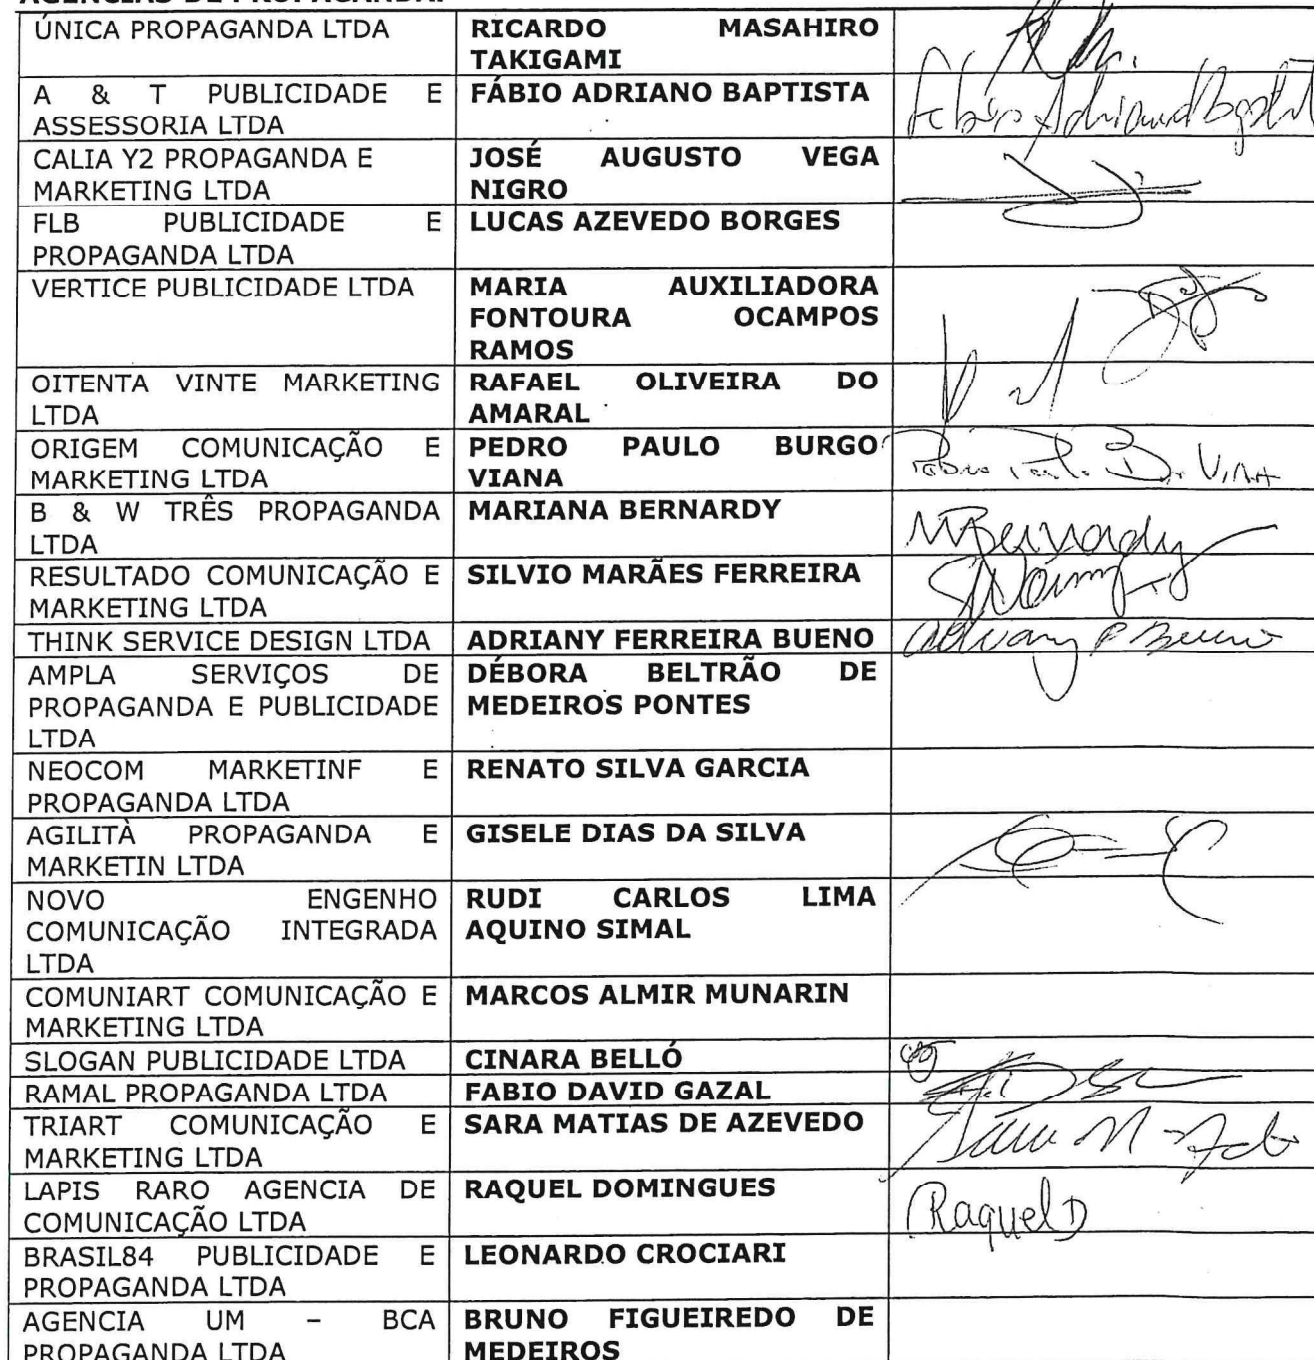 AGÊNCIAS DE PROPAGANDA:
ÚNICA PROPAGANDA LTDA
RICARDO MASAHIRO
TAKIGAMI
A & T PUBLICIDADE E
ASSESSORIA LTDA
FÁBIO ADRIANO BAPTISTA
Fábio Adriano Baptist
CALIA Y2 PROPAGANDA E
MARKETING LTDA
JOSÉ AUGUSTO VEGA
NIGRO
FLB PUBLICIDADE E
PROPAGANDA LTDA
LUCAS AZEVEDO BORGES
VERTICE PUBLICIDADE LTDA
MARIA AUXILIADORA
FONTOURA OCAMPOS
RAMOS
OITENTA VINTE MARKETING
LTDA
RAFAEL OLIVEIRA DO
AMARAL
ORIGEM COMUNICAÇÃO E
MARKETING LTDA
PEDRO PAULO BURGO
VIANA
B & W TRÊS PROPAGANDA
LTDA
MARIANA BERNARDY
MBernardy
RESULTADO COMUNICAÇÃO E
MARKETING LTDA
SILVIO MARÃES FERREIRA
THINK SERVICE DESIGN LTDA
ADRIANY FERREIRA BUENO
Adriany F Bueno
AMPLA SERVIÇOS DE
PROPAGANDA E PUBLICIDADE
LTDA
DÉBORA BELTRÃO DE
MEDEIROS PONTES
NEOCOM MARKETINF E
PROPAGANDA LTDA
RENATO SILVA GARCIA
AGILITÀ PROPAGANDA E
MARKETIN LTDA
GISELE DIAS DA SILVA
NOVO ENGENHO
COMUNICAÇÃO INTEGRADA
LTDA
RUDI CARLOS LIMA
AQUINO SIMAL
COMUNIART COMUNICAÇÃO E
MARKETING LTDA
MARCOS ALMIR MUNARIN
SLOGAN PUBLICIDADE LTDA
CINARA BELLÓ
RAMAL PROPAGANDA LTDA
FABIO DAVID GAZAL
TRIART COMUNICAÇÃO E
MARKETING LTDA
SARA MATIAS DE AZEVEDO
LAPIS RARO AGENCIA DE
COMUNICAÇÃO LTDA
RAQUEL DOMINGUES
Raquel D
BRASIL84 PUBLICIDADE E
PROPAGANDA LTDA
LEONARDO CROCIARI
AGENCIA UM – BCA
PROPAGANDA LTDA
BRUNO FIGUEIREDO DE
MEDEIROS